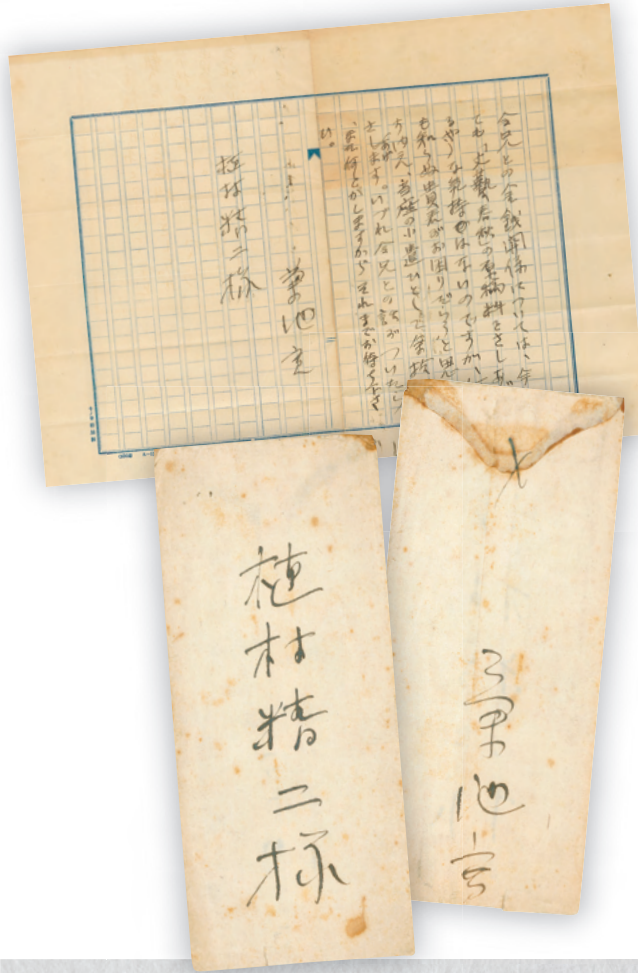 令兄との金銭関係については、
とも、文藝春秋の原稿料をさしあげ
るやうな気持ではないのですが、
も知らぬ貴君がお困りだらうと思
ふゆえ、当座の小遣ひとして金拾
さします。いづれ令兄との話がついたら
何とかしますからそれまでお待ち下さ
い。
菊池寛
植村精二様
植村精二様
〆
菊池寛